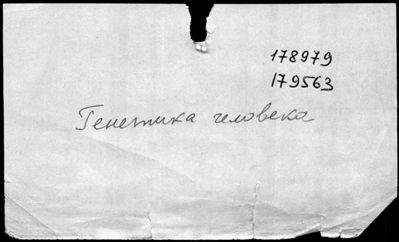 178979
179563
Генетика человека